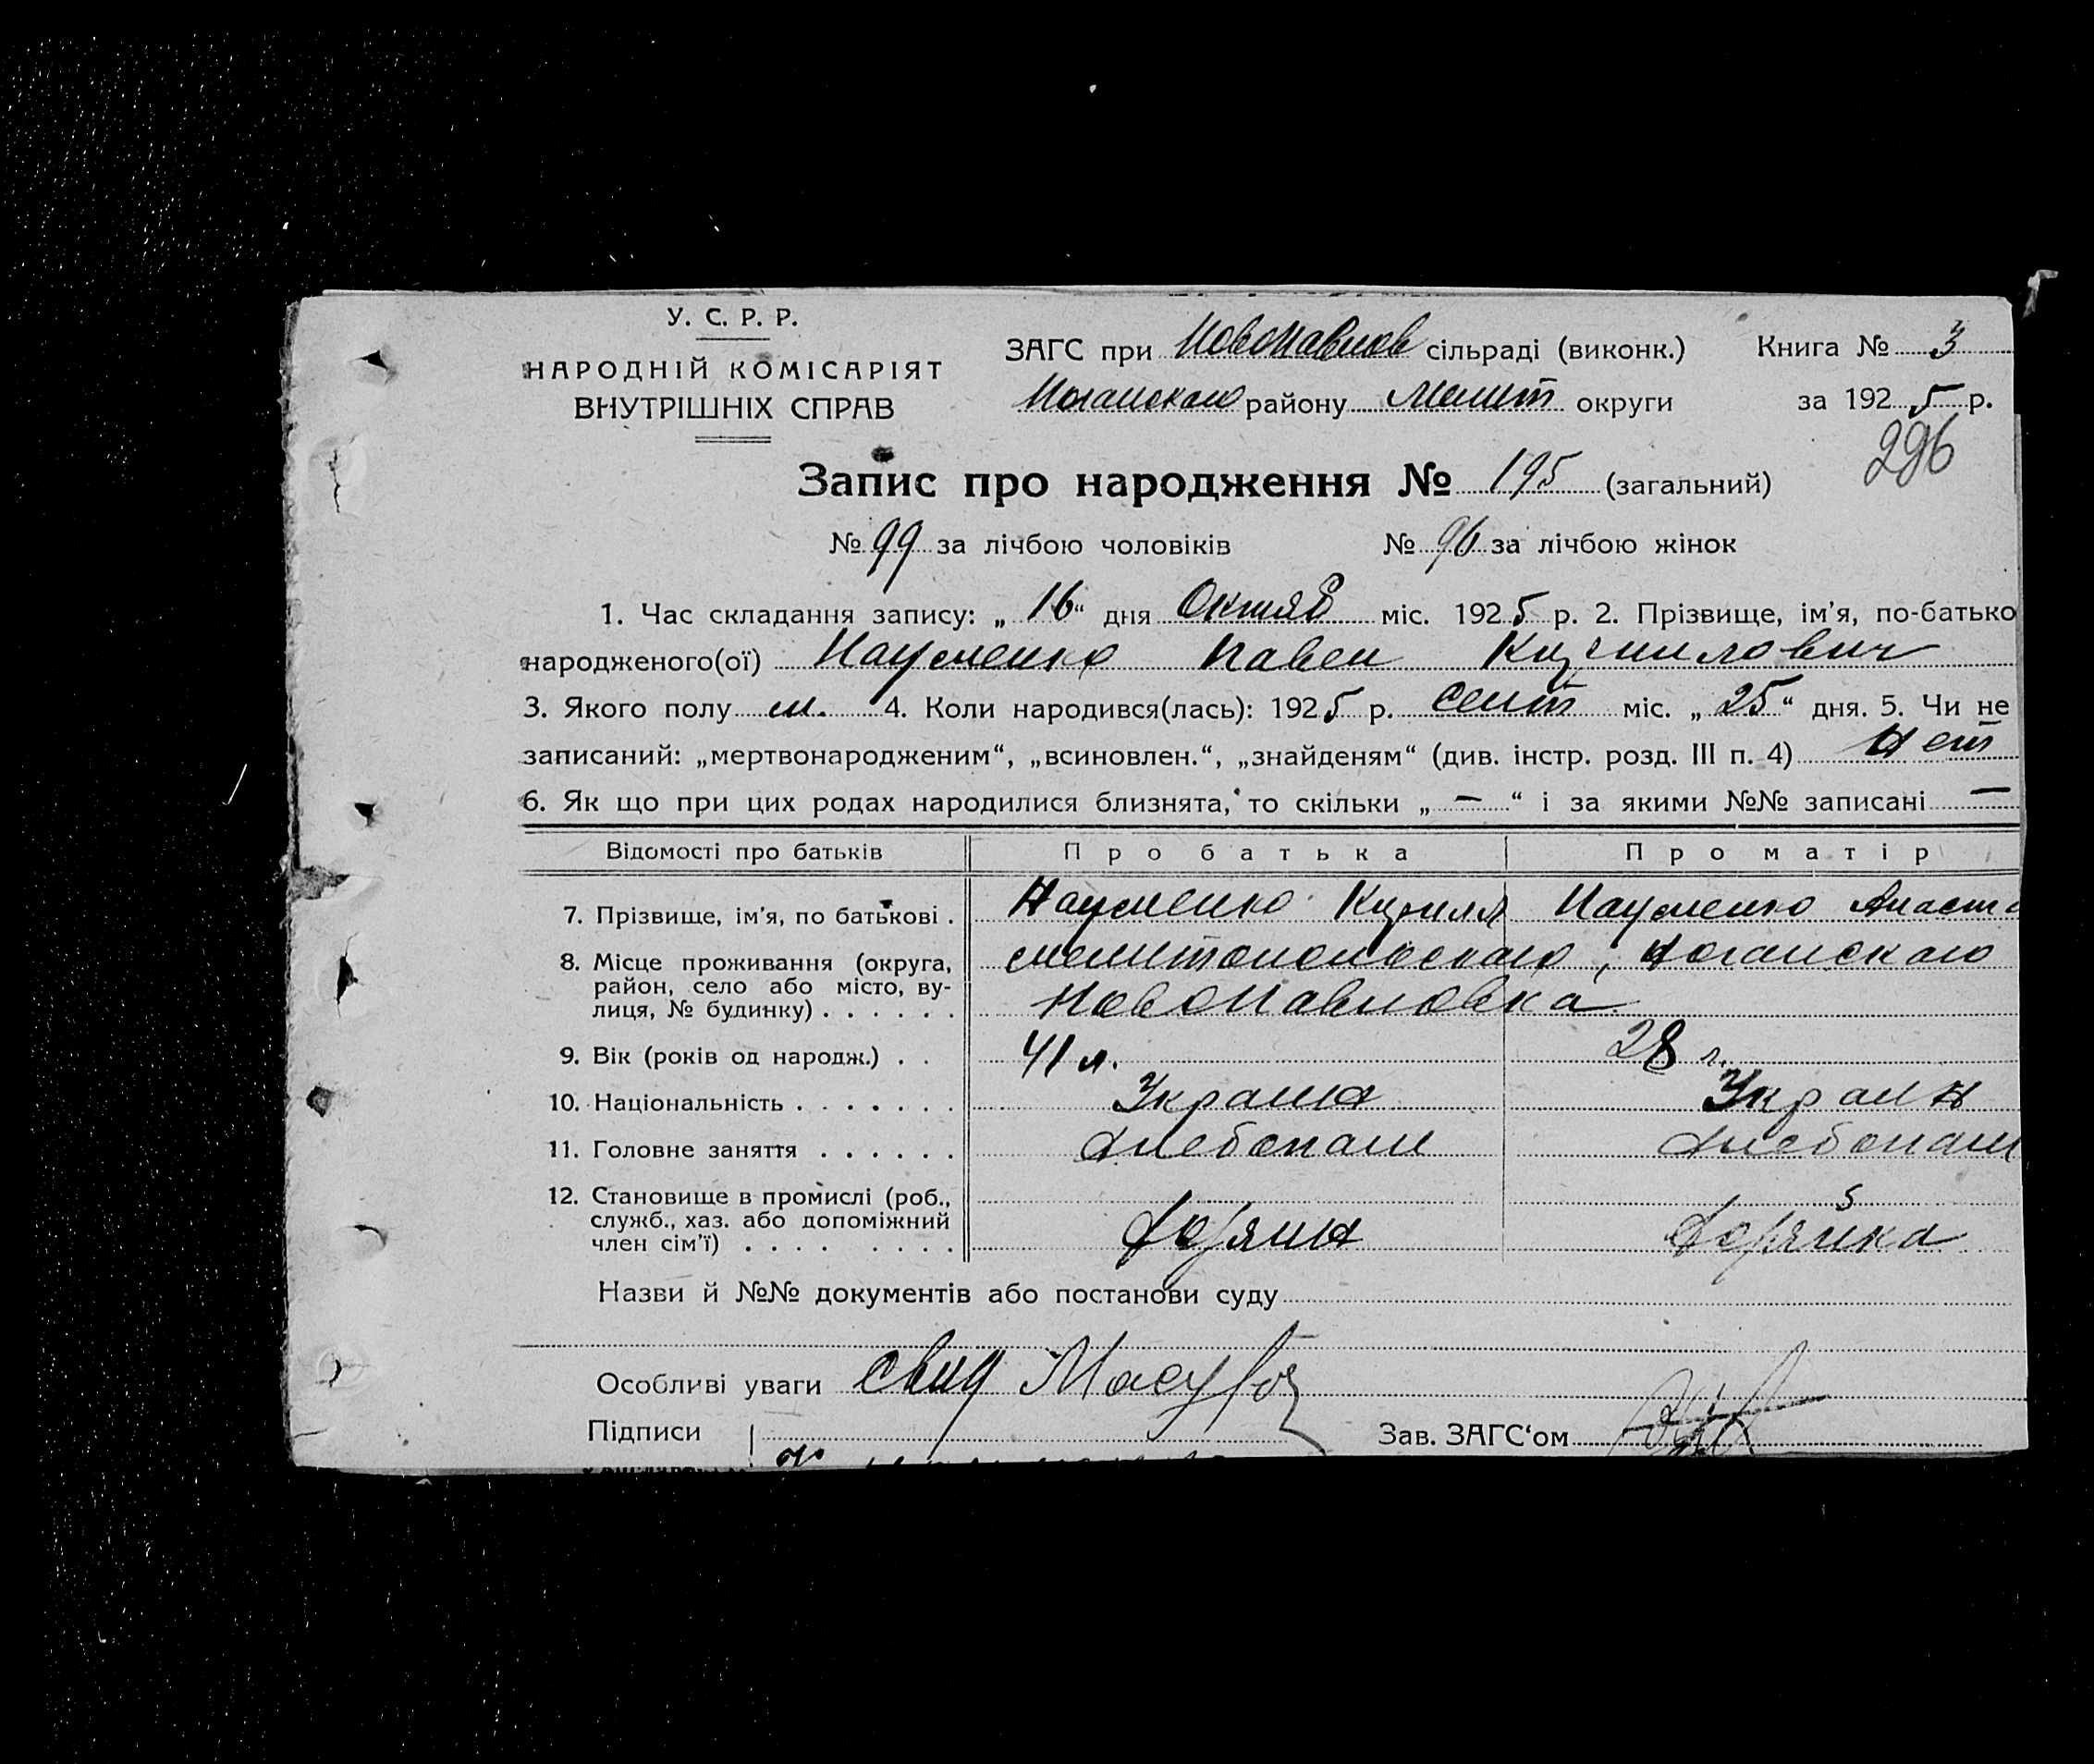 У. С. Р. Р.
НАРОДНІЙ КОМІСАРІЯТ
ВНУТРІШНІХ СПРАВ
ЗАГС при Новопавлов сільраді (виконк.) Книга № 3
Ногайскаго району Мелит округи за 1925 р.
296
Запис про народження № 195 (загальний)
№ 99 за лічбою чоловіків № 96 за лічбою жінок
1. Час складання запису: „16“ дня Октяб міс. 1925 р. 2. Прізвище, ім’я, по-батько
народженого(ої) Науменко Павел Кирилович
3. Якого полу м. 4. Коли народився(лась): 1925 р. Сент міс. „25“ дня. 5. Чи не
записаний: „мертвонародженим“, „всиновлен.“, „знайденям“ (див. інстр. розд. III п. 4) Нет
6. Як що при цих родах народилися близнята, то скільки „—“ і за якими №№ записані —
Відомості про батьків Про батька Про матір
7. Прізвище, ім’я, по батькові . Науменко Кирилл Науменко Анаст
8. Місце проживання (округа, район, село або місто, вулиця, № будинку) . . . . . . Мелитопольскаго, Ногайскаго
Новопавловка
9. Вік (років од народж.) . . 41 л. 28 л.
10. Національність . . . . . . . Украин Украин
11. Головне заняття . . . . . . Хлебопаш Хлебопаш
12. Становище в промислі (роб., служб., хаз. або допоміжний член сім’ї) . . . . . . . . Хозяин Хозяйка
Назви й №№ документів або постанови суду
Особливі уваги свид
Підписи Зав. ЗАГС‘ом